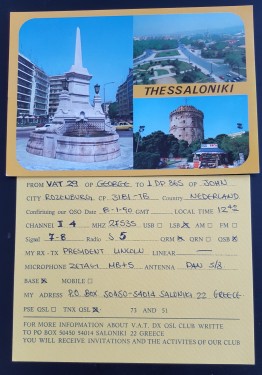 THESSALONIKI
FROM VAT 29 OP GEORGE TO 1 DP 865 OP JOHN
CITY ROZENBURG CP 3181-TG Country NEDERLAND
Confirming our QSO Date 8-1-90 GMT LOCAL TIME 12:42
CHANNEL I 4 MHZ 27535 USB LSB AM FM
Signal 7-8 Radio S 5 QRM QRN QSB
MY RX - TX PRESIDENT LINCOLN LINEAR —
MICROPHONE ZETAGI MB+5 ANTENNA PAN 5/8
BASE MOBILE
MY ADRESS P.O. BOX 50450-54014 SALONIKI 22 GREECE
PSE QSL TNX QSL 73 AND 51
FOR MORE INFORMATION ABOUT V.A.T. DX QSL CLUB WRITTE
TO PO BOX 50450 54014 SALONIKI 22 GREECE
YOU WILL RECEIVE INVITATIONS AND THE ACTIVITES OF OUR CLUB